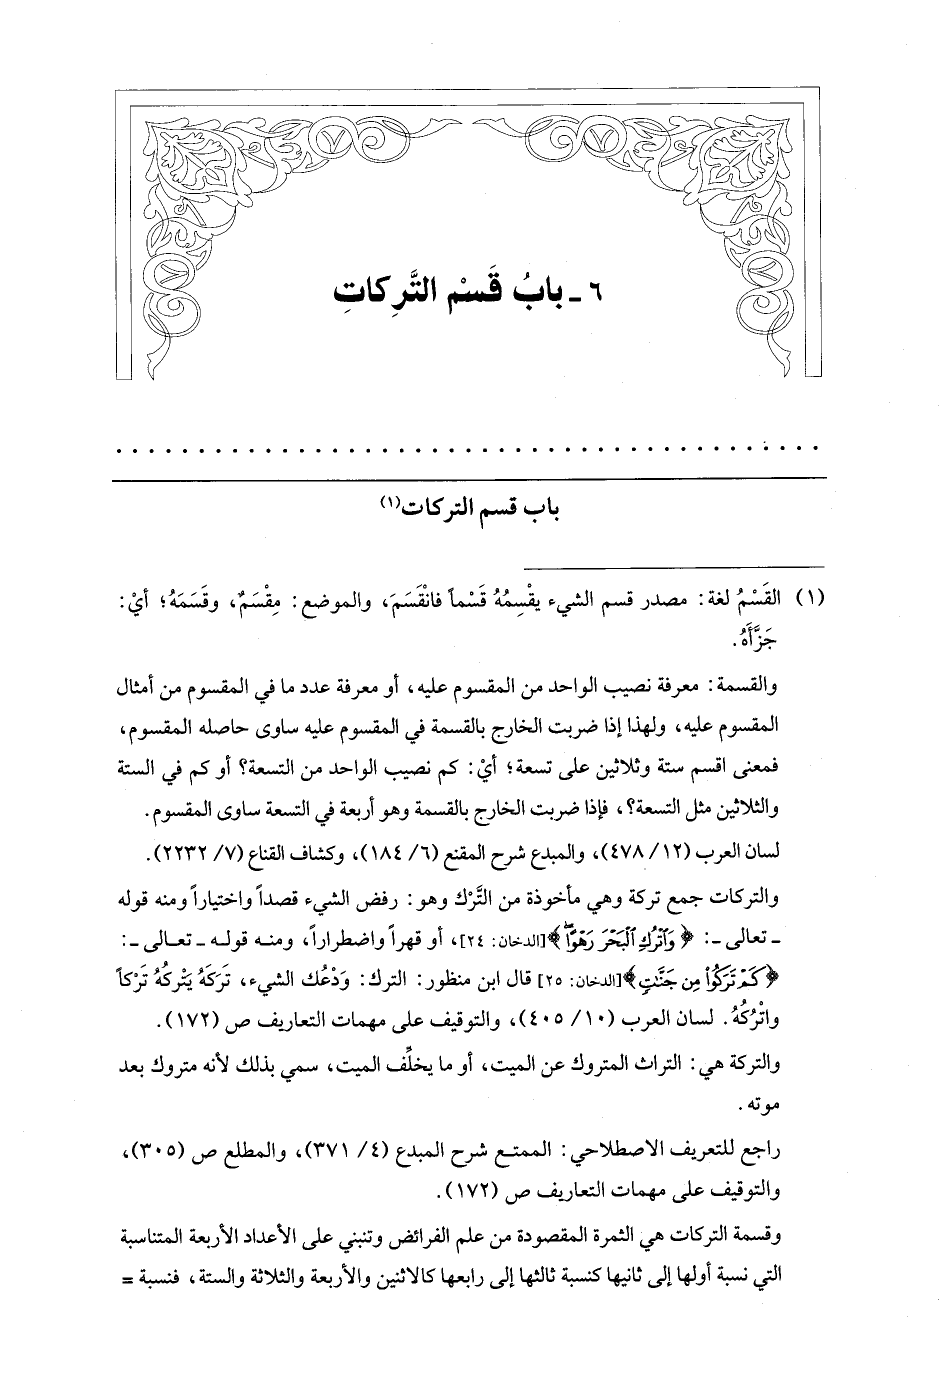 ٦ ـ بابُ قَسْمِ التَّرِكاتِ
. . . . . . . . . . . . . . . . . . . . . . . . . . . . . . . . . . . . . . . . . . .
باب قسم التركات(١)
(١) القَسْمُ لغة: مصدر قسم الشيء يقْسِمُهُ قَسْماً فانْقَسَمَ، والموضع: مِقْسَمٌ، وقَسَمَهُ؛ أيْ:
جَزَّأَهُ.
والقسمة: معرفة نصيب الواحد من المقسوم عليه، أو معرفة عدد ما في المقسوم من أمثال
المقسوم عليه، ولهذا إذا ضربت الخارج بالقسمة في المقسوم عليه ساوى حاصله المقسوم،
فمعنى اقسم ستة وثلاثين على تسعة؛ أيْ: كم نصيب الواحد من التسعة؟ أو كم في الستة
والثلاثين مثل التسعة؟، فإذا ضربت الخارج بالقسمة وهو أربعة في التسعة ساوى المقسوم.
لسان العرب (١٢/ ٤٧٨)، والمبدع شرح المقنع (٦/ ١٨٤)، وكشاف القناع (٧/ ٢٢٣٢).
والتركات جمع تركة وهي مأخوذة من التَّرْك وهو: رفض الشيء قصداً واختياراً ومنه قوله
ـ تعالى ـ: ﴿وَاتْرُكِ الْبَحْرَ رَهْوًا﴾[الدخان: ٢٤]، أو قهراً واضطراراً، ومنه قوله ـ تعالى ـ:
﴿كَمْ تَرَكُوا مِن جَنَّاتٍ﴾[الدخان: ٢٥] قال ابن منظور: الترك: وَدْعُك الشيء، تَرَكَهُ يَتْركُهُ تَرْكاً
واتْرُكْهُ. لسان العرب (١٠/ ٤٠٥)، والتوقيف على مهمات التعاريف ص (١٧٢).
والتركة هي: التراث المتروك عن الميت، أو ما يخلِّف الميت، سمي بذلك لأنه متروك بعد
موته.
راجع للتعريف الاصطلاحي: الممتع شرح المبدع (٤/ ٣٧١)، والمطلع ص (٣٠٥)،
والتوقيف على مهمات التعاريف ص (١٧٢).
وقسمة التركات هي الثمرة المقصودة من علم الفرائض وتنبني على الأعداد الأربعة المتناسبة
التي نسبة أولها إلى ثانيها كنسبة ثالثها إلى رابعها كالاثنين والأربعة والثلاثة والستة، فنسبة =